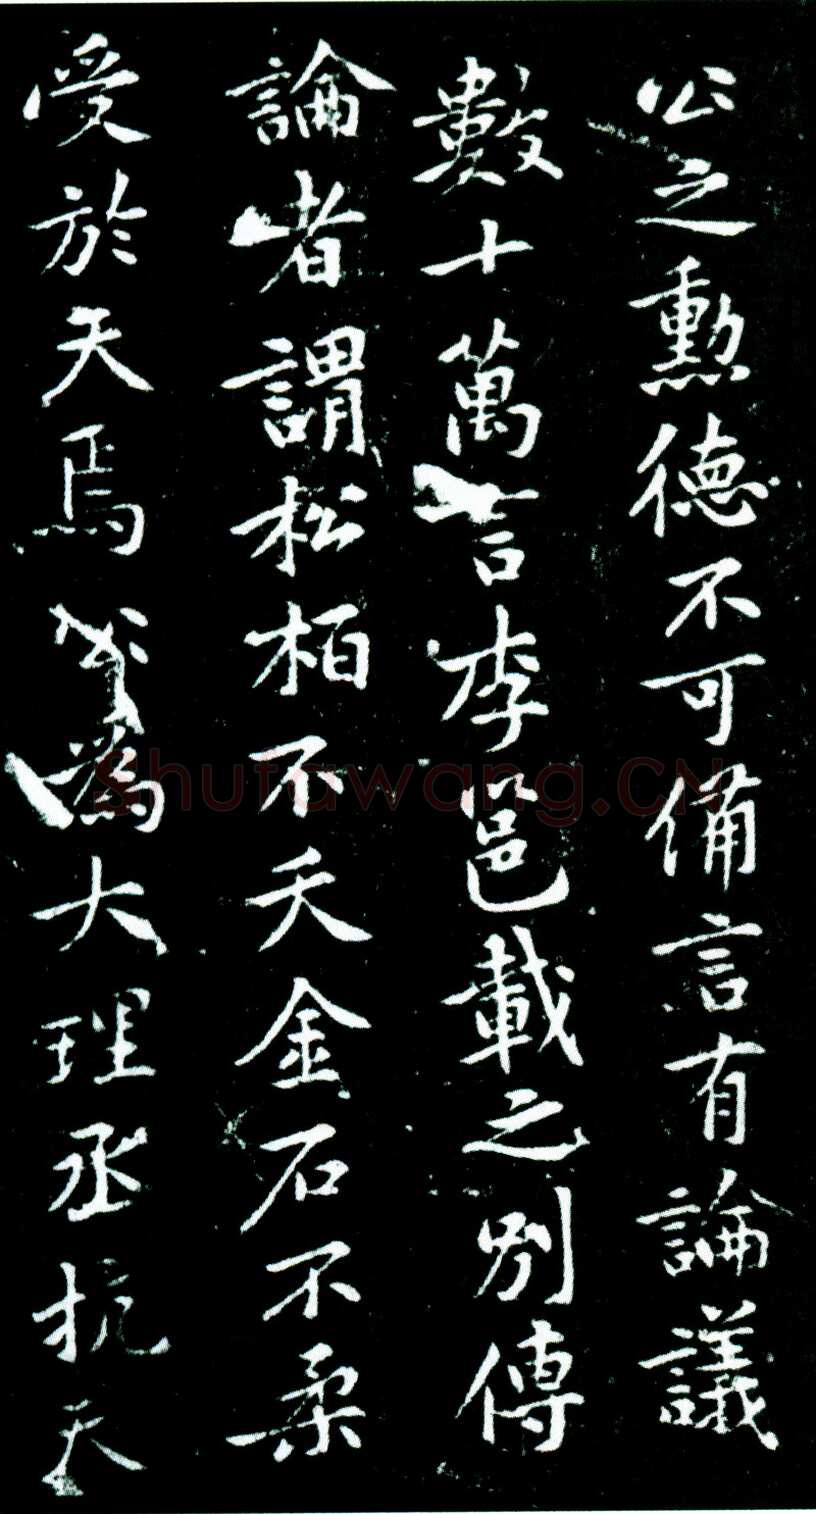 公之勲德不可備言有論議
數十萬言李邕載之別傳
論者謂松柏不夭金石不柔
受於天焉公為大理丞抗天
Shufawang.CN